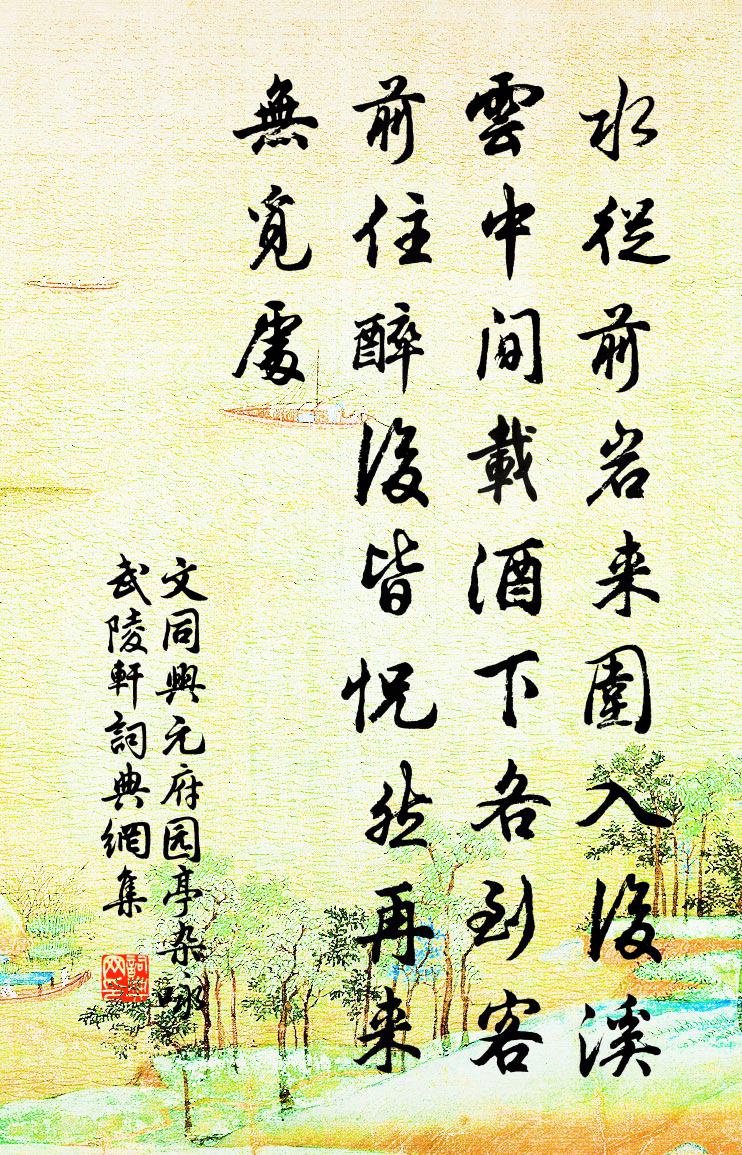 水從前岩来圍入後溪
雲中間載酒下各到客
前住醉後皆怳然再来
無覓處
文同興元府园亭杂咏
武陵軒詞典網集